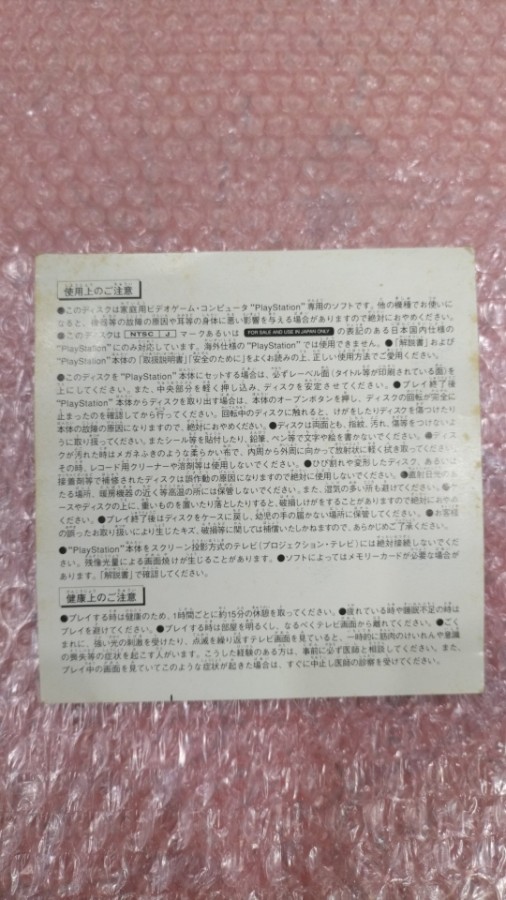 使用上のご注意
●このディスクは家庭用ビデオゲーム・コンピュータ“PlayStation”専用のソフトです。他の機種でお使いに
なると、機器等の故障の原因や耳等の身体に悪い影響を与える場合がありますので絶対におやめください。
●このディスクは NTSC J マークあるいは FOR SALE AND USE IN JAPAN ONLY の表記のある日本国内仕様の
“PlayStation”にのみ対応しています。海外仕様の“PlayStation”では使用できません。●「解説書」および
“PlayStation”本体の「取扱説明書」「安全のために」をよくお読みの上、正しい使用方法でご使用ください。
●このディスクを“PlayStation”本体にセットする場合は、必ずレーベル面（タイトル等が印刷されている面）を
上にしてください。また、中央部分を軽く押し込み、ディスクを安定させてください。●プレイ終了後
“PlayStation”本体からディスクを取り出す場合は、本体のオープンボタンを押し、ディスクの回転が完全に
止まったのを確認してから行ってください。回転中のディスクに触れると、けがをしたりディスクを傷つけたり
本体の故障の原因になりますので、絶対におやめください。●ディスクは両面とも、指紋、汚れ、傷等をつけないよ
うに取り扱ってください。またシール等を貼付したり、鉛筆、ペン等で文字や絵を書かないでください。●ディス
クが汚れた時はメガネふきのような柔らかい布で、内周から外周に向かって放射状に軽く拭き取ってください。
その時、レコード用クリーナーや溶剤等は使用しないでください。●ひび割れや変形したディスク、あるいは
接着剤等で補修されたディスクは誤作動の原因になりますので絶対に使用しないでください。●直射日光のあ
たる場所、暖房機器の近く等高温の所には保管しないでください。また、湿気の多い所も避けてください。●ケ
ースやディスクの上に、重いものを置いたり落としたりすると、破損しけがをすることがありますので絶対におやめ
ください。●プレイ終了後はディスクをケースに戻し、幼児の手の届かない場所に保管してください。●お客様
の誤ったお取り扱いにより生じたキズ、破損等に関しては補償いたしかねますので、あらかじめご了承ください。
●“PlayStation”本体をスクリーン投影方式のテレビ（プロジェクション・テレビ）には絶対接続しないでくだ
さい。残像光量による画面焼けが生じることがあります。●ソフトによってはメモリーカードが必要な場合が
あります。「解説書」で確認してください。
健康上のご注意
●プレイする時は健康のため、1時間ごとに約15分の休憩を取ってください。●疲れている時や睡眠不足の時は
プレイを避けてください。●プレイする時は部屋を明るくし、なるべくテレビ画面から離れてください。●ごく
まれに、強い光の刺激を受けたり、点滅を繰り返すテレビ画面を見ていると、一時的に筋肉のけいれんや意識
の喪失等の症状を起こす人がいます。こうした経験のある方は、事前に必ず医師と相談してください。また、
プレイ中の画面を見ていてこのような症状が起きた場合は、すぐに中止し医師の診察を受けてください。